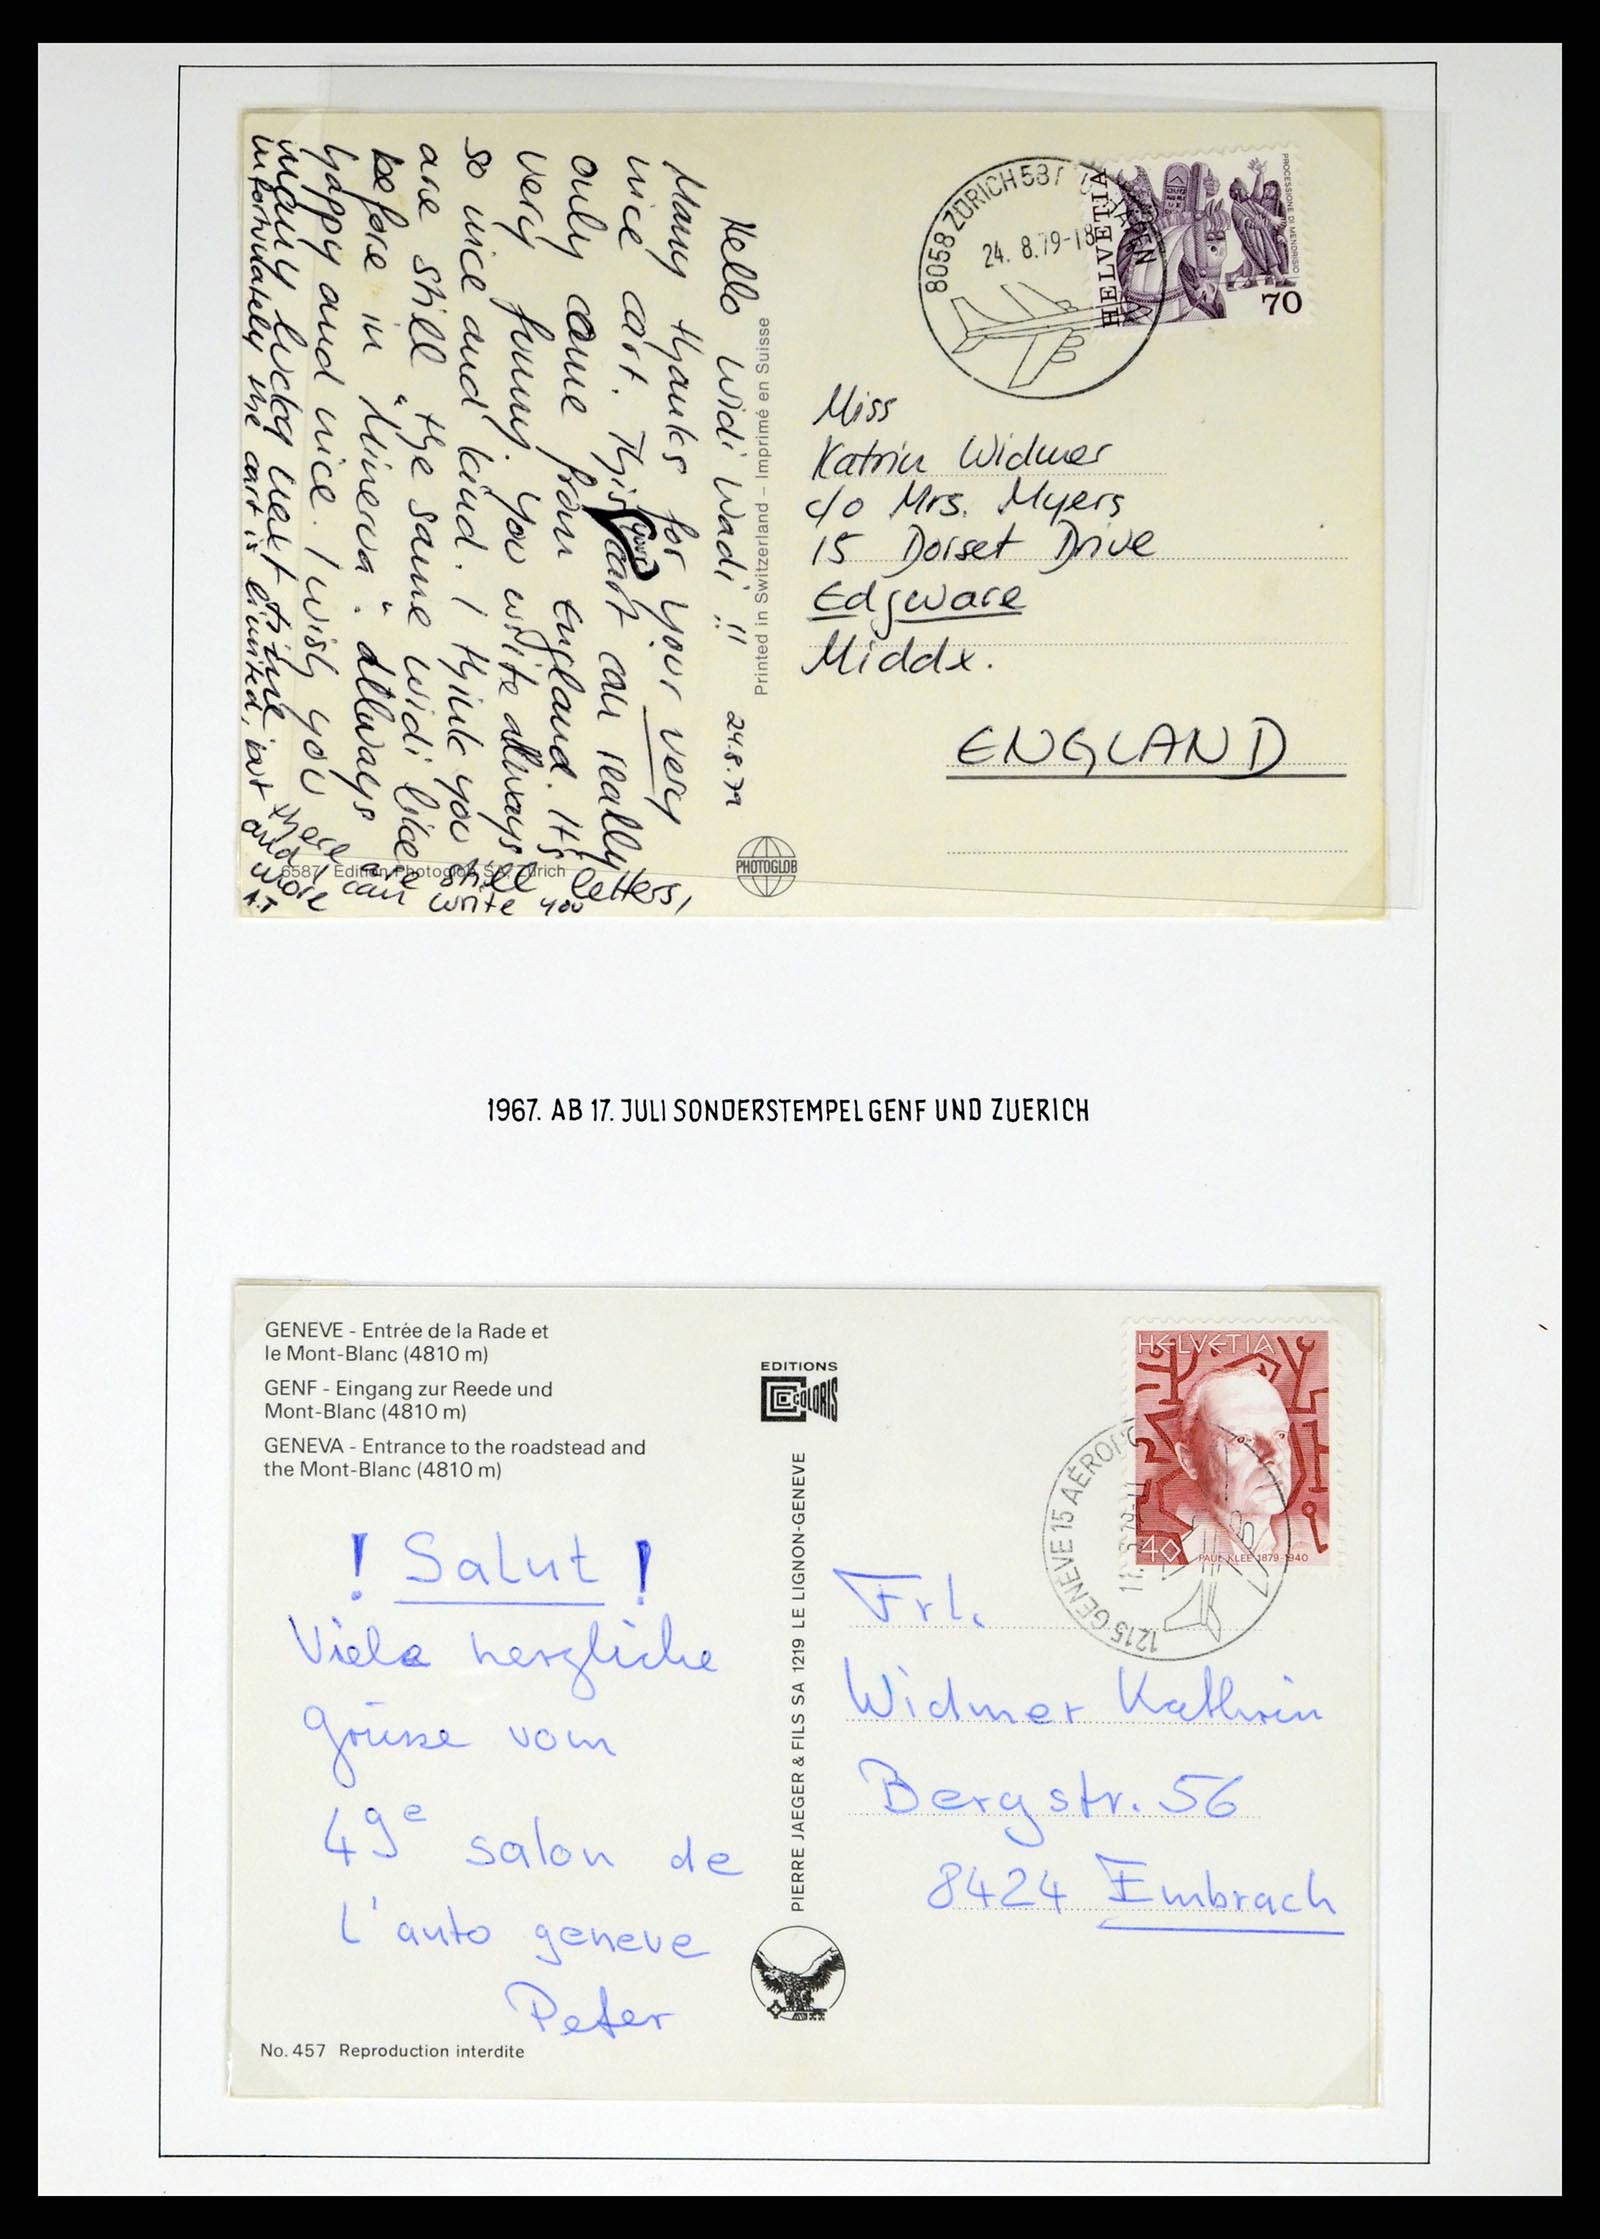 Hello Widi Wadi !! 24.8.79
Many thanks for your very
nice cart. This (your) cart can really
only come from England. It's
very funny. You write allways
so nice and kind. I think you
are still the same Widi like
before in "Minerva". Allways
happy and nice. I wish you
many lucky next time
infortunately the cart is limited, but there are still letters,
and I can write you
more
A.T
6587 Edition Photoglob SA, Zürich
Printed in Switzerland – Imprimé en Suisse
PHOTOGLOB
8058 ZÜRICH 58
24. 8.79-18
HELVETIA
PROCESSIONE DI MENDRISIO
70
Miss
Katrin Widmer
c/o Mrs. Myers
15 Dorset Drive
Edgware
Middx.
ENGLAND
1967. AB 17. JULI SONDERSTEMPEL GENF UND ZUERICH
GENEVE - Entrée de la Rade et
le Mont-Blanc (4810 m)
GENF - Eingang zur Reede und
Mont-Blanc (4810 m)
GENEVA - Entrance to the roadstead and
the Mont-Blanc (4810 m)
! Salut !
Viele herzliche
Grüsse vom
49e salon de
l'auto geneve
Peter
No. 457 Reproduction interdite
EDITIONS
COLORIS
PIERRE JAEGER & FILS SA 1219 LE LIGNON-GENEVE
HELVETIA
40
PAUL KLEE 1879-1940
1215 GENEVE 15
Frl.
Widmer Kathrin
Bergstr. 56
8424 Embrach